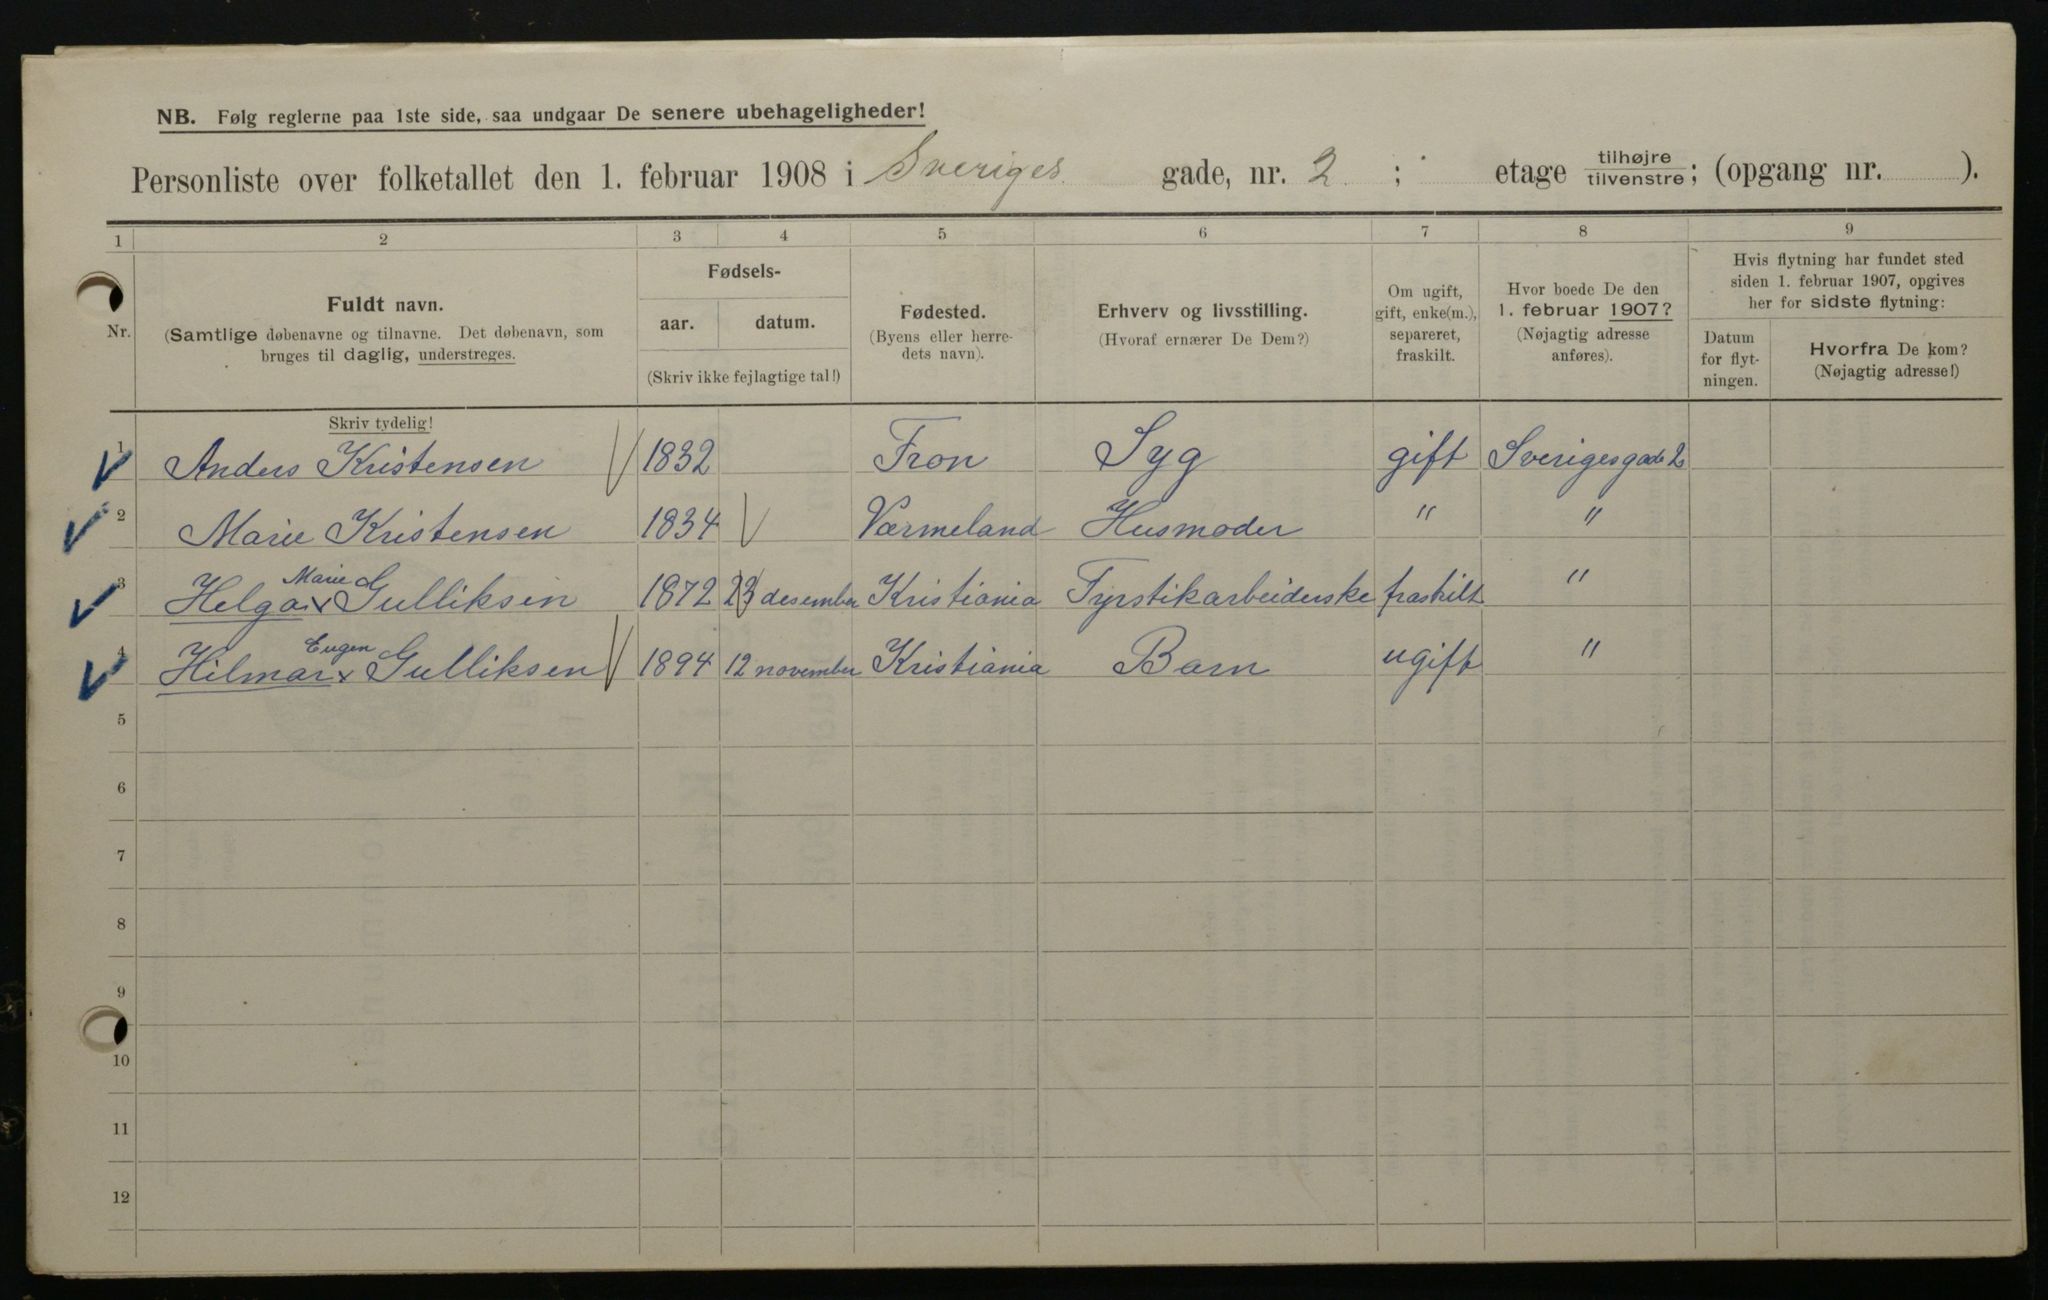 NB. Følg reglerne paa 1ste side, saa undgaar De senere ubehageligheder!
Personliste over folketallet den 1. februar 1908 i Sveriges gade, nr. 2 ; etage tilhøjre/tilvenstre; (opgang nr. ).
1 2 3 4 5 6 7 8 9
Nr.
Fuldt navn.
(Samtlige døbenavne og tilnavne. Det døbenavn, som
bruges til daglig, understreges.
Fødsels-
aar. datum.
(Skriv ikke fejlagtige tal!)
Fødested.
(Byens eller herre-
dets navn).
Erhverv og livsstilling.
(Hvoraf ernærer De Dem?)
Om ugift,
gift, enke(m.),
separeret,
fraskilt.
Hvor boede De den
1. februar 1907?
(Nøjagtig adresse
anføres).
Hvis flytning har fundet sted
siden 1. februar 1907, opgives
her for sidste flytning:
Datum
for flyt-
ningen.
Hvorfra De kom?
(Nøjagtig adresse!)
Skriv tydelig!
1 Anders Kristensen 1832 Fron Syg gift Sverigesgade 2
2 Marie Kristensen 1834 Værmeland Husmoder " "
Marie
3 Helga x Gulliksen 1872 23 desember Kristiania Fyrstikarbeiderske fraskilt "
Eugen
4 Hilmar x Gulliksen 1894 12 november Kristiania Barn ugift "
5
6
7
8
9
10
11
12